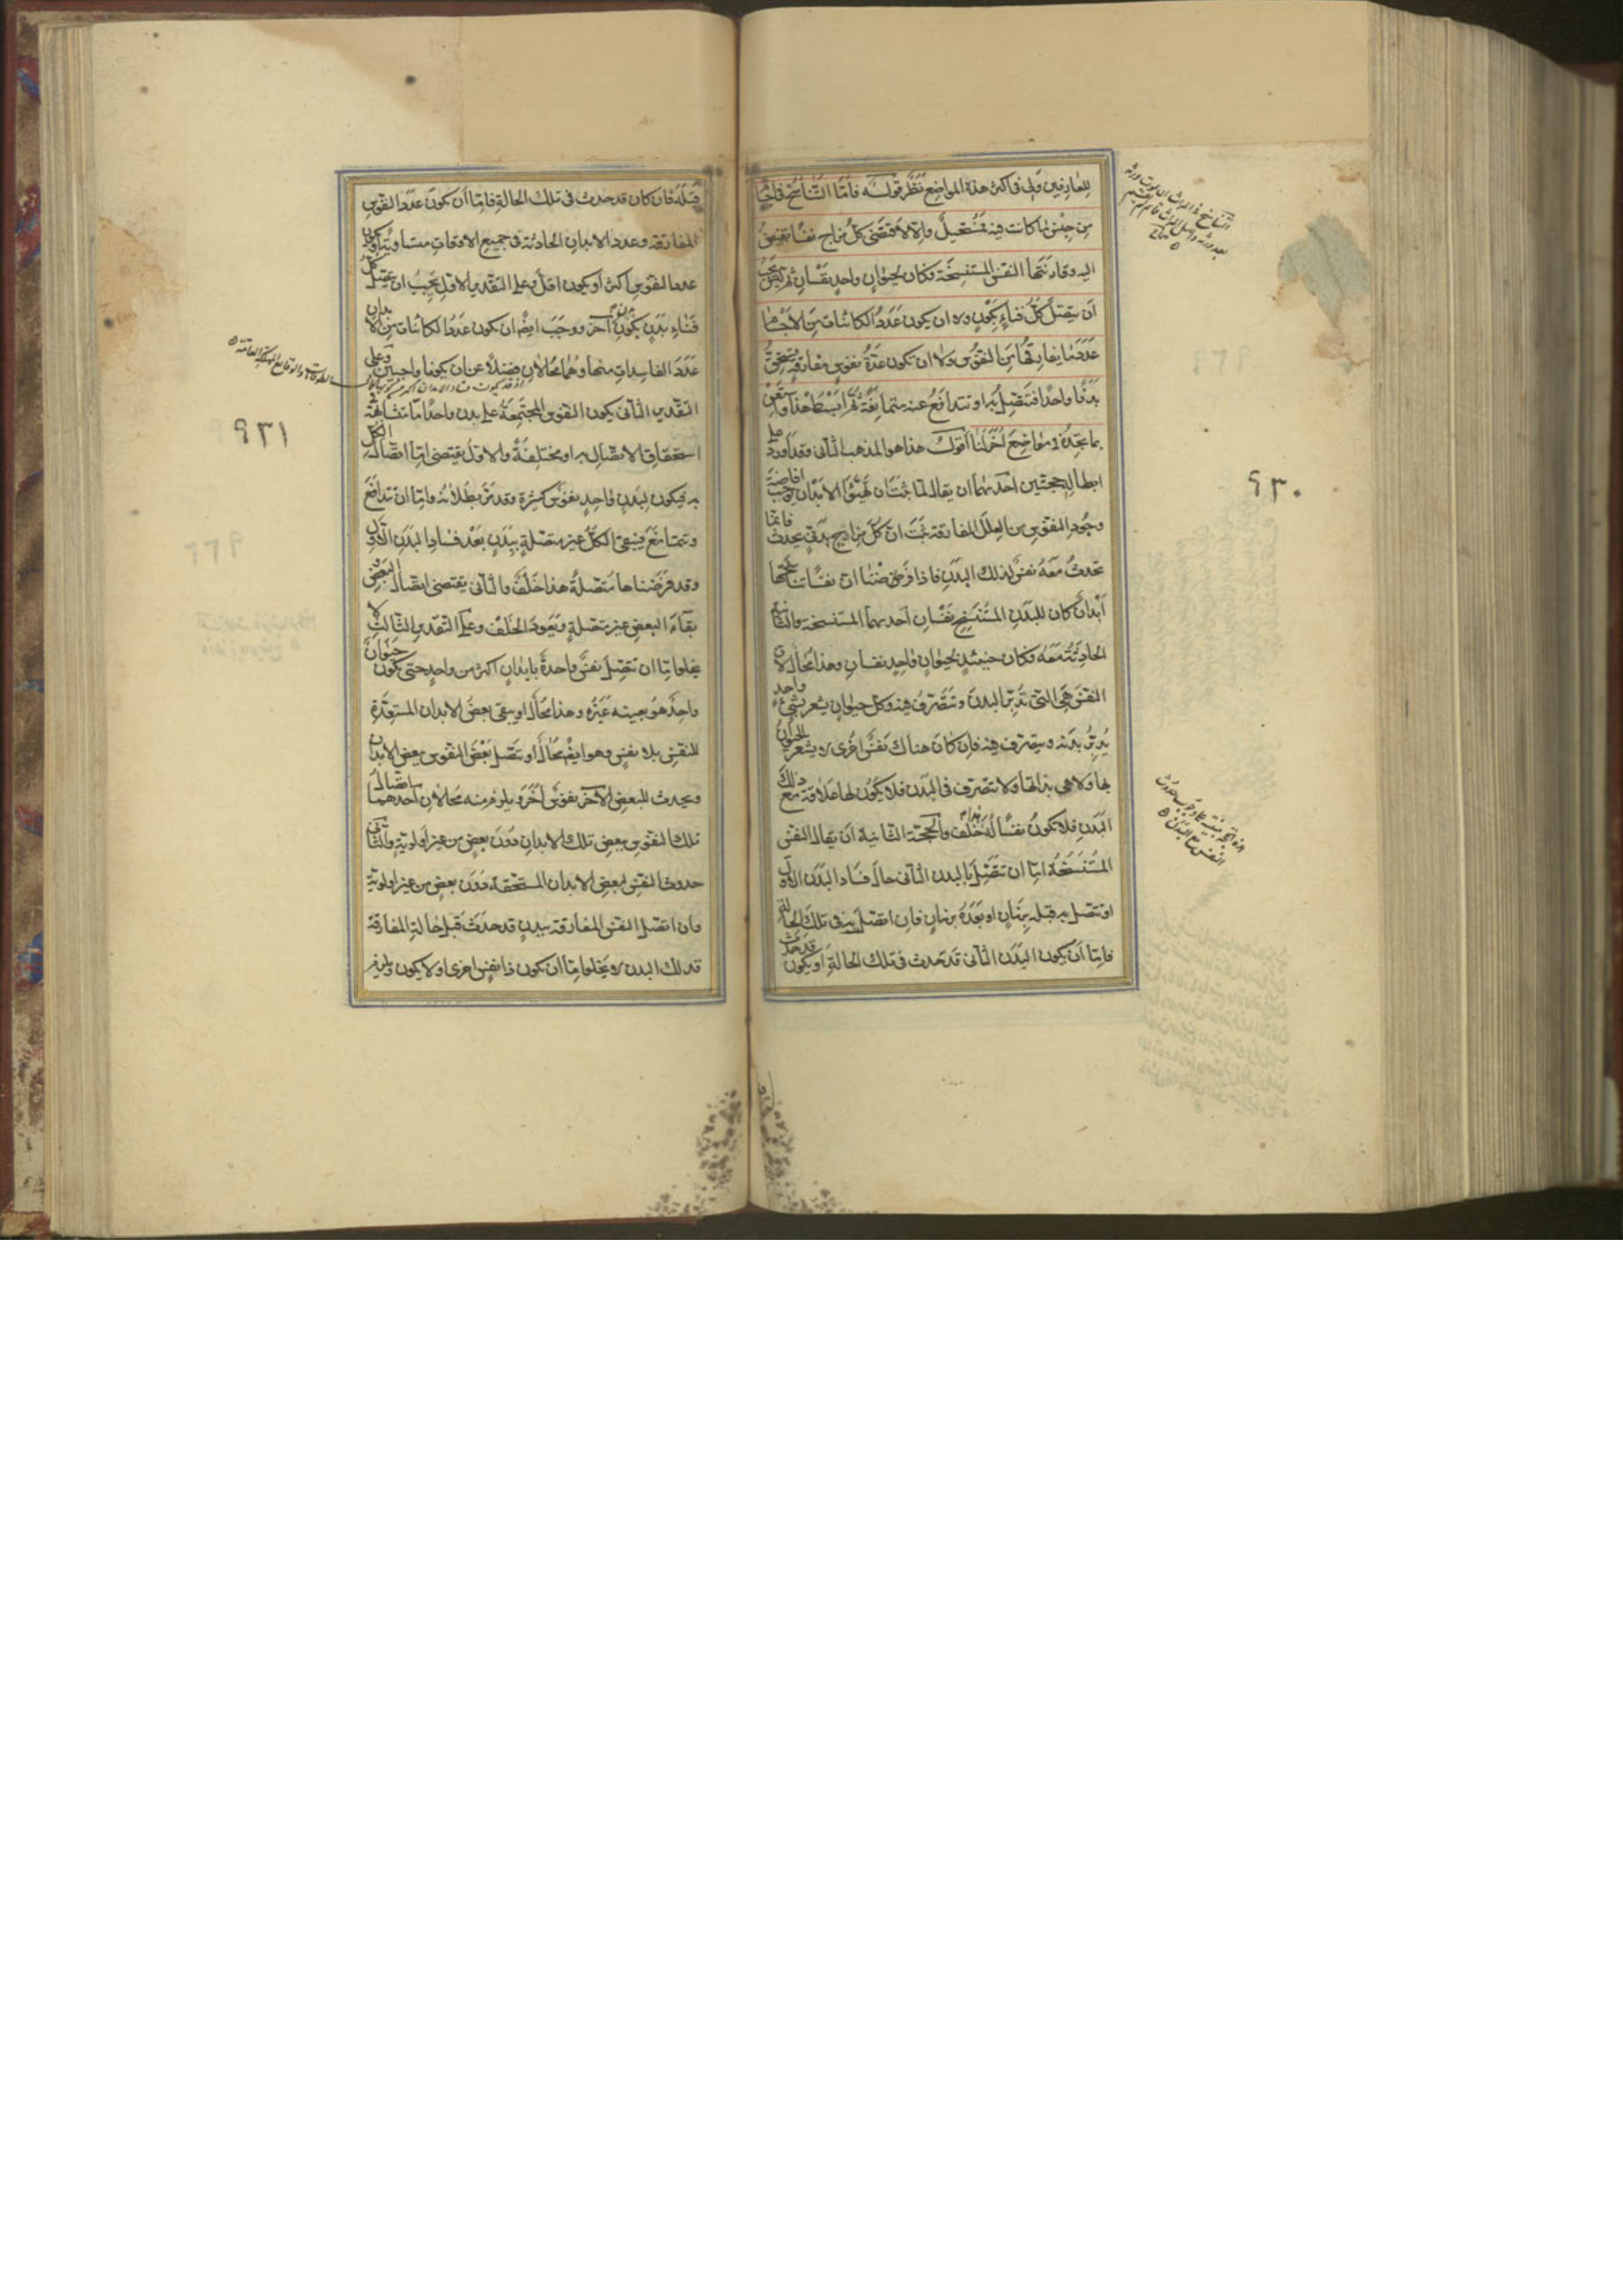 للعارفين ولى فى اكثر هذه المواضع نظر قوله فامّا التّناسخ فى اجسام
من جنس ما كانت فيه فمستحيل والّا لاقتضى كلّ مزاج نفسًا تفيض
اليه وقارنتها النفس المستنسخة فكان لحيوان واحد نفسان ثم ليس يجب
ان يتصل كلّ فناء بكون ولا ان يكون عدد الكائنات من الاجسام
عدد ما يفارقها من النفوس ولا ان تكون عدّة نفوس مفارقة يستحق
بدنًا واحدًا فتتصل به او تتدافع عنه متمانعة ثم ابسط هذا واستعن
بما تجده فى مواضع اخر لنا اقول هذا هو المذهب الثانى وقد اورد على
ابطاله حجتين احدهما ان يقال لما ثبت ان تهيّؤ الابدان يوجب افاضة
وجود النفوس من العلل المفارقة ثبت ان كلّ مزاج بدنى يحدث فانما
تحدث معه نفس لذلك البدن فاذا فرضنا ان نفسًا تناسختها
ابدان كان للبدن المستنسخ نفسان احدهما المستنسخة والثانية
الحادثة معه فكان حينئذ لحيوان واحد نفسان وهذا محال لان
النفس هى التى تدبّر البدن وتتصرف فيه وكل حيوان يشعر بشىء واحد
يدبّر بدنه ويتصرف فيه فان كان هناك نفس اخرى لا يشعر الحيوان
بها ولا هى بذاتها ولا تتصرف فى البدن فلا يكون لها علاقة مع ذلك
البدن فلا تكون نفسًا له هذا خلف والحجة الثانية ان يقال النفس
المستنسخة امّا ان تتصل بالبدن الثانى حال فساد البدن الاول
او تتصل به قبله بزمان او بعده بزمان فان اتصلت به فى تلك الحالة
فامّا ان يكون البدن الثانى قد حدث فى تلك الحالة او يكون قد حدث
٩٣٠
قبله فان كان قد حدث فى تلك الحالة فامّا ان يكون عدد النفوس
المفارقة وعدد الابدان الحادثة فى جميع الاوقات متساويين او يكون
عدد النفوس اكثر او يكون اقل وعلى التقدير الاول يجب ان يتصل كل
فناء بدن بكون بدن آخر ووجب ايضًا ان يكون عدد الكائنات من الابدان
عدد الفاسدات منها وهما محالان فضلًا عن ان يكونا واجبين وعلى
التقدير الثانى يكون النفوس المجتمعة على بدن واحد امّا متشابهة فى
استحقاق الاتصال به او مختلفة والاول يقتضى امّا اتصال الكل
به فيكون لبدن واحد نفوس كثيرة وقد مرّ بطلانه وامّا ان تتدافع
وتتمانع فيبقى الكل غير متصلة ببدن بعد فساد البدن الاول
وقد فرضناها متصلة هذا خلف والثانى يقتضى اتصال البعض و
بقاء البعض غير متصلة ويعود الخلف وعلى التقدير الثالث لا
يخلو امّا ان تتصل نفس واحدة بابدان اكثر من واحد حتى يكون حيوان
واحد هو بعينه غيره وهذا محال او يبقى بعض الابدان المستعدّة
للنفس بلا نفس وهو ايضًا محال او تتصل بعض النفوس ببعض الابدان
ويحدث للبعض الآخر نفوس اخر ويلزم منه محالان احدهما اتصال
تلك النفوس ببعض تلك الابدان دون بعض من غير اولوية والثانى
حدوث النفس لبعض الابدان المستحقة دون بعض من غير اولوية
وان اتصل النفس المفارقة ببدن قد حدث قبل حالة المفارقة
فذلك البدن لا يخلو امّا ان يكون ذا نفس اخرى او لا يكون ويلزم
٩٣١